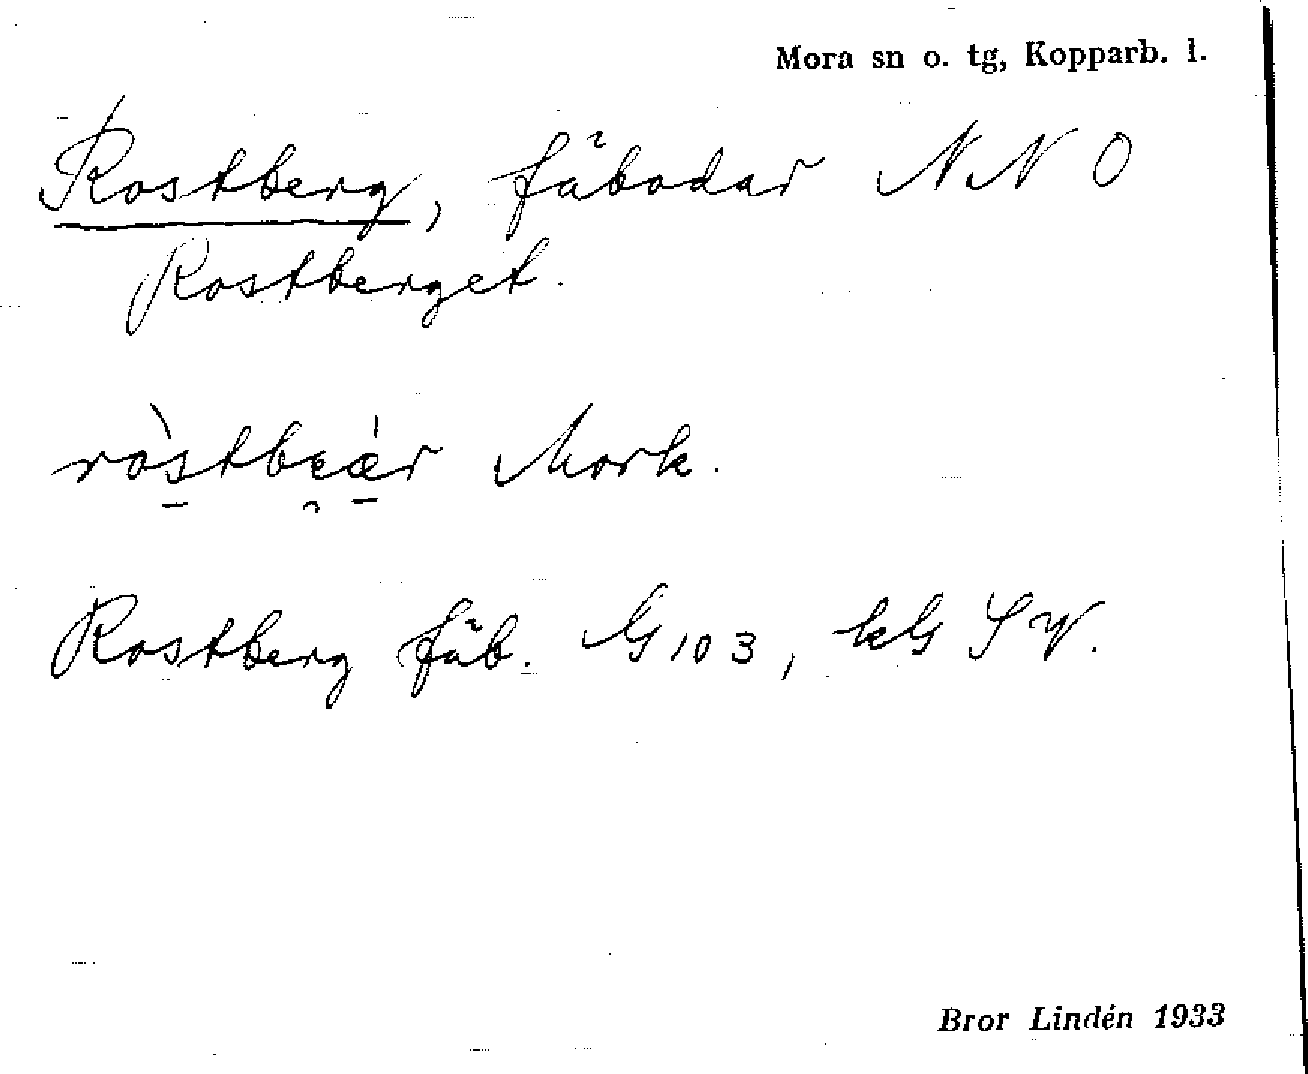 Mora sn o. tg, Kopparb. l.
Rostberg, fäbodar NNO
Rostberget.
ròstbeær Mork.
Rostberg fäb. G103, kG SV.
Bror Lindén 1933